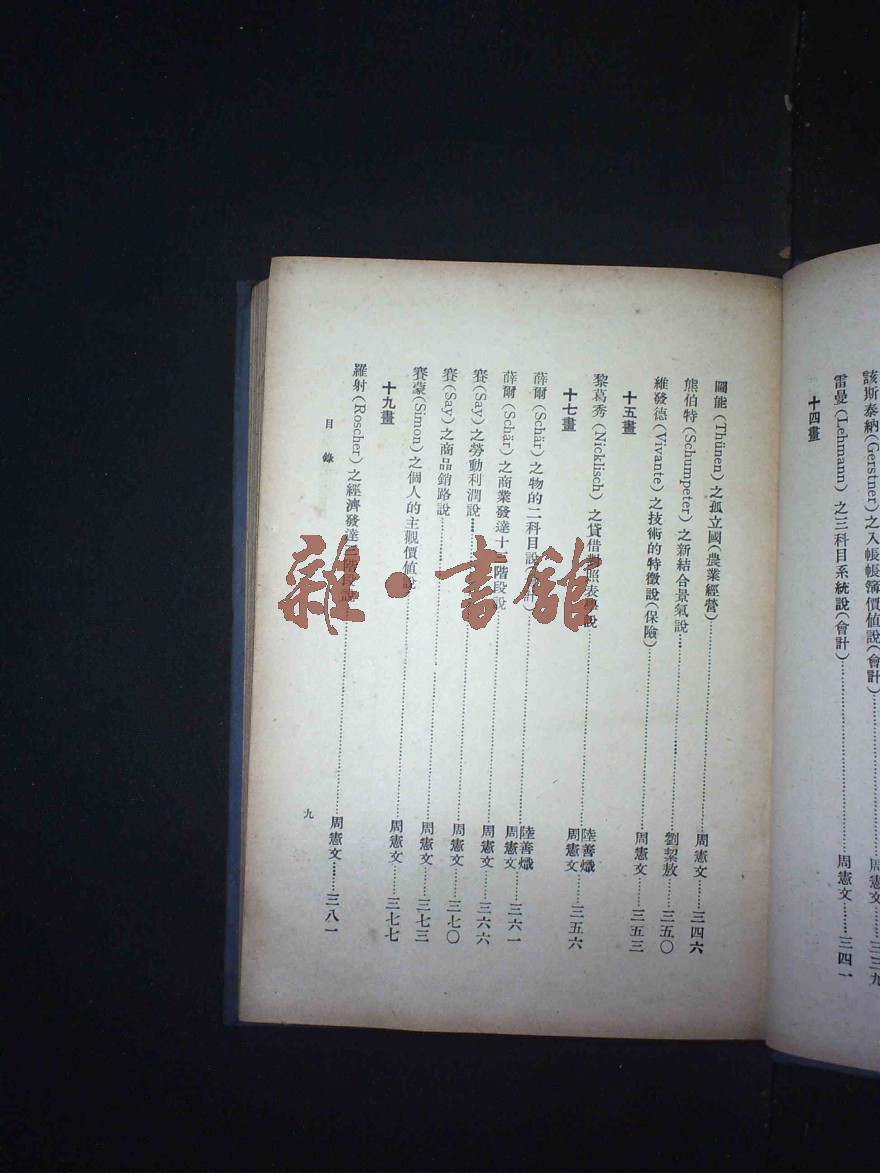 該斯泰納(Gerstner)之入帳帳簿價值說(會計)……周憲文……三三九
雷曼(Lehmann)之三科目系統說(會計)……周憲文……三四一
十四畫
圖能(Thünen)之孤立國(農業經營)……周憲文……三四六
熊伯特(Schumpeter)之新結合景氣說……劉絜敖……三五〇
維發德(Vivante)之技術的特徵說(保險)……周憲文……三五三
十五畫
黎葛秀(Nicklisch)之貸借對照表學說……陸善熾 周憲文……三五六
十七畫
薛爾(Schär)之物的二科目說(會計)……陸善熾 周憲文……三六一
薛爾(Schär)之商業發達十三階段說……周憲文……三六六
賽(Say)之勞動利潤說……周憲文……三七〇
賽(Say)之商品銷路說……周憲文……三七三
賽蒙(Simon)之個人的主觀價值說……周憲文……三七七
十九畫
羅射(Roscher)之經濟發達三階段說……周憲文……三八一
目錄
九
雜·書館